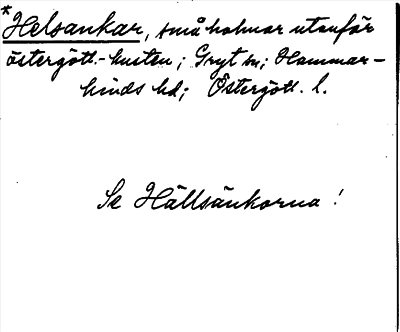 *Helsankar, små holmar utanför
östergötl.-kusten; Gryt sn; Hammar-
kinds hd; Östergötl. l.
Se Hällsänkorna!